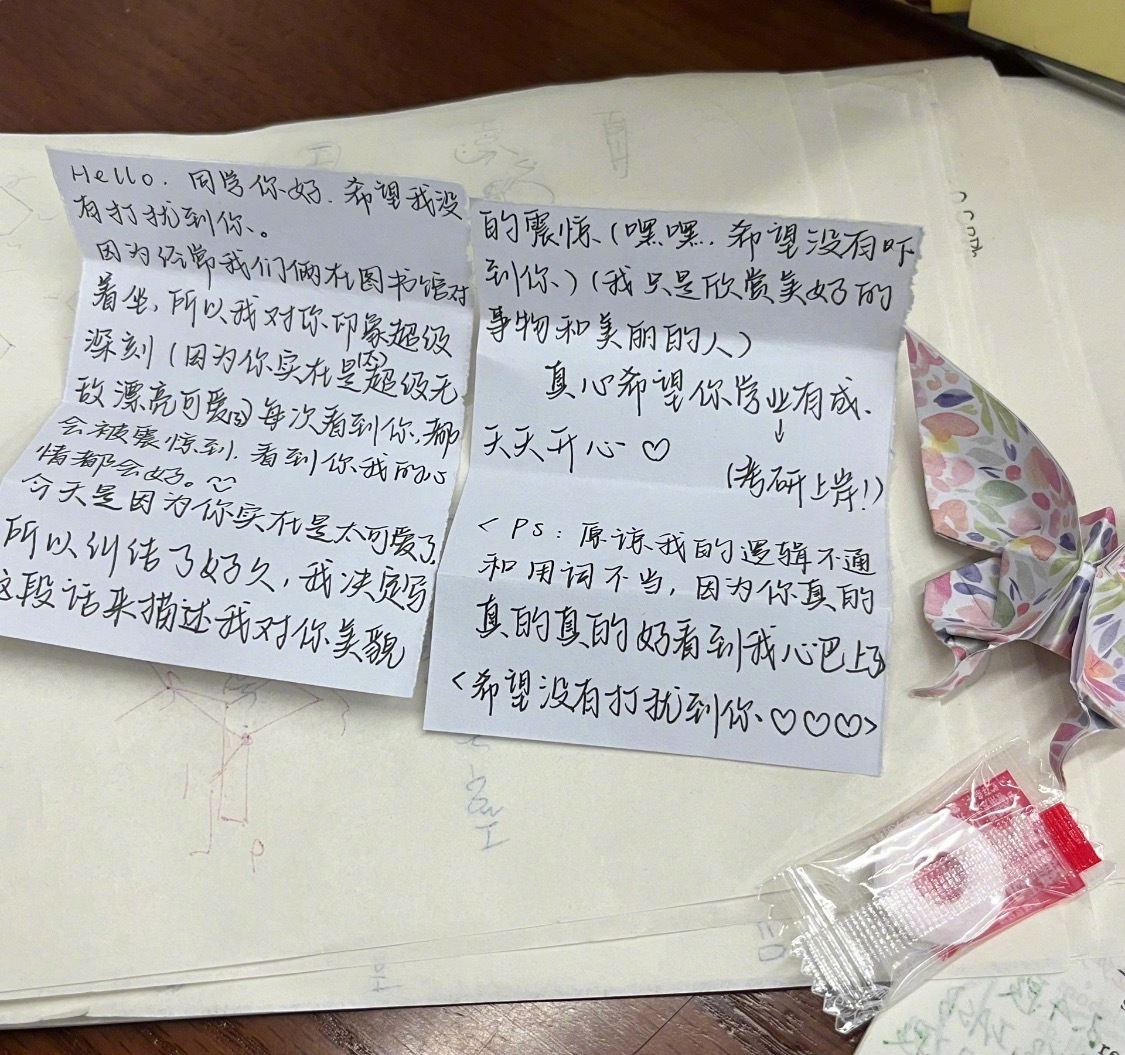 Hello. 同学你好. 希望我没
有打扰到你。
因为经常我们俩在图书馆对
着坐, 所以我对你印象超级
深刻 (因为你实在是(太)超级无
敌漂亮可爱 每次看到你, 都
会被震惊到. 看到你我的心
情都会好。~
今天是因为你实在是太可爱了,
所以纠结了好久, 我决定写
这段话来描述我对你美貌
的震惊 (嘿嘿. 希望没有吓
到你) (我只是欣赏美好的
事物和美丽的人)
真心希望你学业有成、
↓
天天开心 ♡
(考研上岸!)
< PS: 原谅我的逻辑不通
和用词不当, 因为你真的
真的真的好看到我心巴上了
<希望没有打扰到你、♡♡♡>